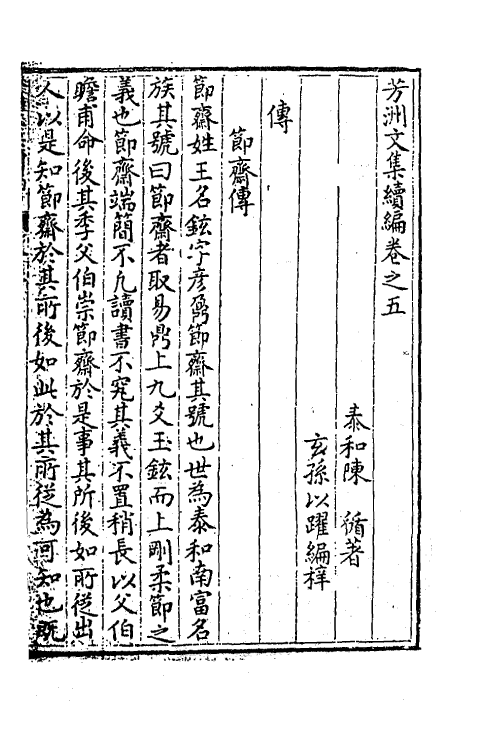 芳洲文集續編卷之五
泰和陳　循著
玄孫以躍編梓
傳
節齋傳
節齋姓王名鉉字彦鼐節齋其號也世為泰和南富名
族其號曰節齋者取易鼎上九爻玉鉉而上剛柔節之
義也節齋端簡不凡讀書不究其義不置稍長以父伯
瞻甫命後其季父伯崇節齋於是事其所後如所從出
人以是知節齋於其所後如此於其所從為可知也既